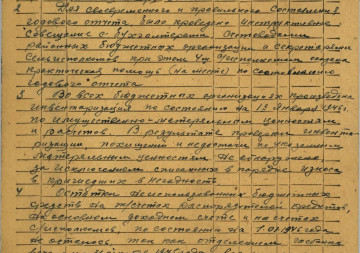 2 Для своевременного и правильного составления
годового отчета было проведено инструктивное
совещание с бухгалтерами
районных бюджетных организаций и секретарями
сельисполкомов при этом
практическая помощь (на месте) по составлению
годового отчета
3 Во всех бюджетных организациях проведена
инвентаризация по состоянию на 1946г.
по имущественно-материальным ценностям
и расчетов. В результате проверки инвента
ризации, похищений и недостачи по указанным
материальным ценностям не обнаружено,
за исключением списанных в порядке износа
и пришедших в негодность
4 Остатки неиспользованных бюджетных
средств на т/счетах распорядителей кредитов,
на основном доходном счете и на счетах
с/исполкомов, по состоянию на 1946 года
не осталось, так как отделением госбанка